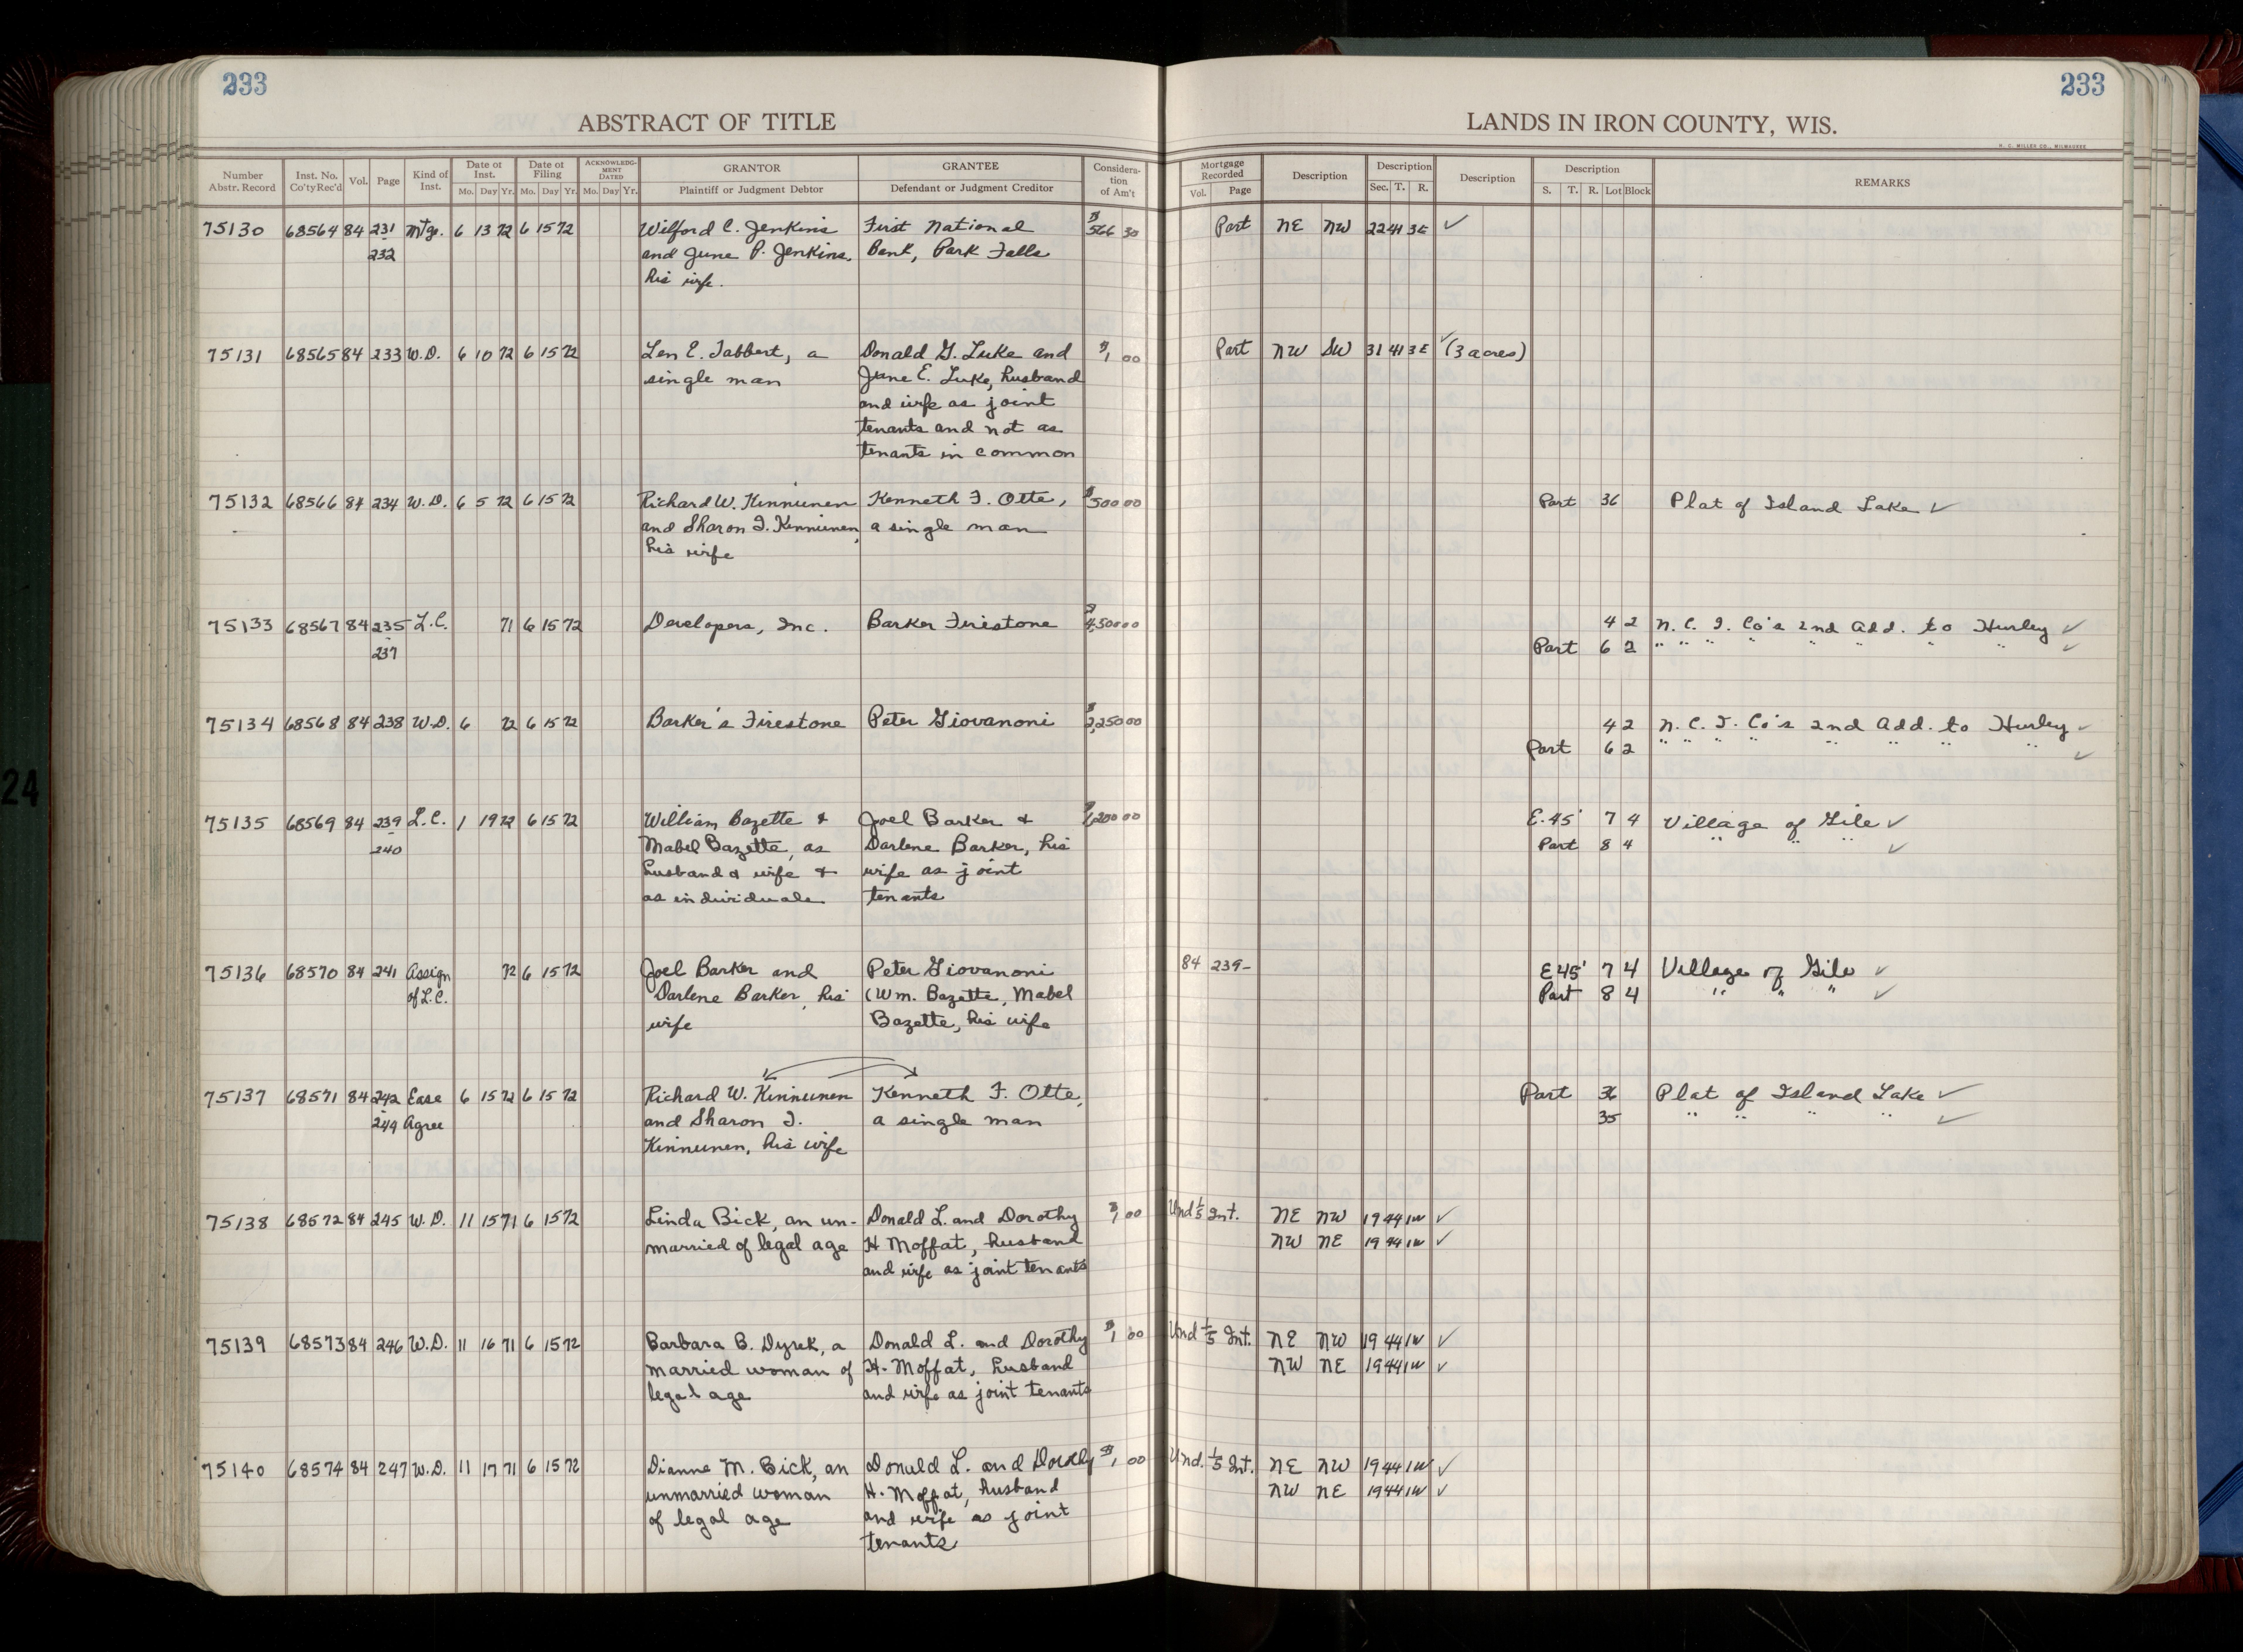 233
233
ABSTRACT OF TITLE
LANDS IN IRON COUNTY, WIS.
H. C. MILLER CO., MILWAUKEE
Number Abstr. Record | Inst. No. Co'ty Rec'd | Vol. | Page | Kind of Inst. | Date of Inst. Mo. Day Yr. | Date of Filing Mo. Day Yr. | ACKNOWLEDGMENT DATED Mo. Day Yr. | GRANTOR Plaintiff or Judgment Debtor | GRANTEE Defendant or Judgment Creditor | Consideration of Am't | Mortgage Recorded Vol. Page | Description | Description Sec. T. R. | Description | Description S. T. R. Lot Block | REMARKS
75130 68564 84 231 Mtge. 6 13 72 6 15 72 Wilford C. Jenkins First National $566 30 Part NE NW 22 41 3E ✓
232 and June P. Jenkins, Bank, Park Falls
his wife.
75131 68565 84 233 W.D. 6 10 72 6 15 72 Len E. Tabbert, a Donald G. Luke and $1 00 Part NW SW 31 41 3E ✓ (3 acres)
single man June E. Luke, husband
and wife as joint
tenants and not as
tenants in common
75132 68566 84 234 W.D. 6 5 72 6 15 72 Richard W. Kinnunen Kenneth F. Otte, $500 00 Part 36 Plat of Island Lake ✓
and Sharon I. Kinnunen, a single man
his wife
75133 68567 84 235 L.C. 71 6 15 72 Developers, Inc. Barker Firestone $4,500 00 4 2 N. C. I. Co's 2nd Add. to Hurley ✓
- 237 Part 6 2 " " " " " " " " ✓
75134 68568 84 238 W.D. 6 72 6 15 72 Barker's Firestone Peter Giovanoni $2,250 00 4 2 N. C. I. Co's 2nd Add. to Hurley ✓
Part 6 2 " " " " " " " " ✓
75135 68569 84 239 L.C. 1 19 72 6 15 72 William Bazette & Joel Barker & 200 00 E. 45' 7 4 Village of Gile ✓
- 240 Mabel Bazette, as Darlene Barker, his Part 8 4 " " " ✓
husband & wife & wife as joint
as individuals tenants
75136 68570 84 241 Assign 72 6 15 72 Joel Barker and Peter Giovanoni 84 239- E 45' 7 4 Village of Gile ✓
of L.C. Darlene Barker, his (Wm. Bazette, Mabel Part 8 4 " " " ✓
wife Bazette, his wife
75137 68571 84 242 Ease 6 15 72 6 15 72 Richard W. Kinnunen Kenneth F. Otte, Part 36 Plat of Island Lake ✓
- 244 Agree and Sharon I. a single man 35 " " " " ✓
Kinnunen, his wife
75138 68572 84 245 W.D. 11 15 71 6 15 72 Linda Bick, an un- Donald L. and Dorothy $1 00 Und 1/5 Int. NE NW 19 44 1W ✓
married of legal age H Moffat, husband NW NE 19 44 1W ✓
and wife as joint tenants
75139 68573 84 246 W.D. 11 16 71 6 15 72 Barbara B. Dyrek, a Donald L. and Dorothy $1 00 Und 1/5 Int. NE NW 19 44 1W ✓
married woman of H. Moffat, husband NW NE 19 44 1W ✓
legal age and wife as joint tenants
75140 68574 84 247 W.D. 11 17 71 6 15 72 Dianne M. Bick, an Donald L. and Dorothy $1 00 Und. 1/5 Int. NE NW 19 44 1W ✓
unmarried woman H. Moffat, husband NW NE 19 44 1W ✓
of legal age and wife as joint
tenants
24